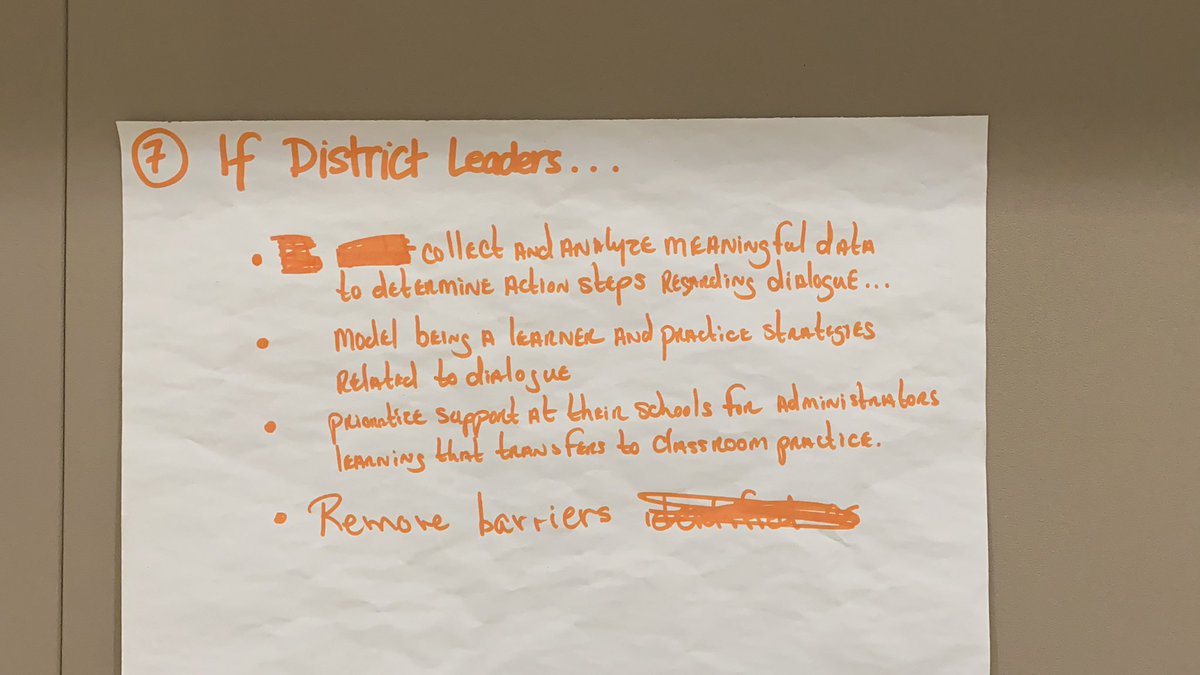 7 If District Leaders...
• collect and analyze meaningful data
to determine action steps regarding dialogue...
• Model being a learner and practice strategies
related to dialogue
• prioratize support at their schools for administrators
learning that transfers to classroom practice.
• Remove barriers